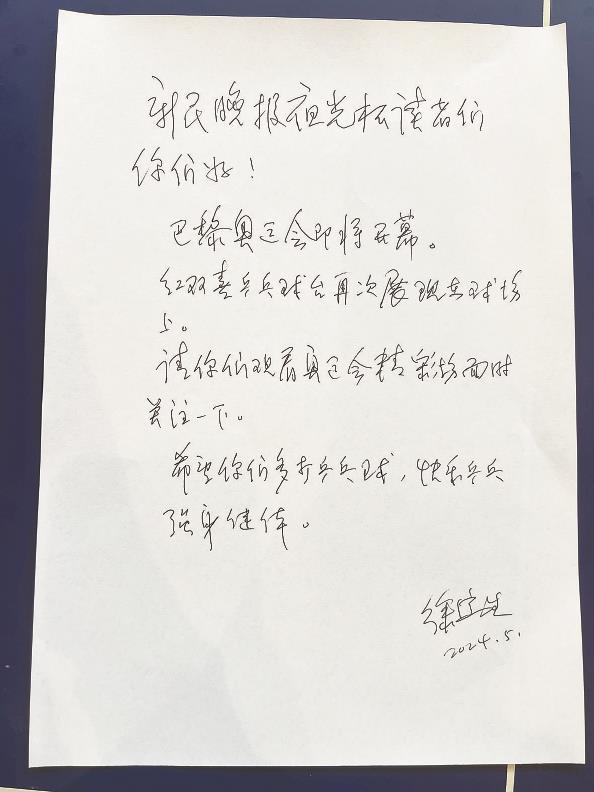 新民晚报夜光杯读者们
你们好！
巴黎奥运会即将开幕。
红双喜乒乓球台再次展现在球场
上。
请你们观看奥运会精彩场面时
关注一下。
希望你们多打乒乓球，快乐乒乓
强身健体。
徐寅生
2024.5.